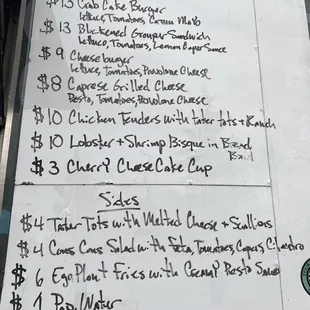 $13 Crab Cake Burger
Lettuce, Tomatoes, Cajun Mayo
$13 Blackened Grouper Sandwich
Lettuce, Tomatoes, Lemon Caper Sauce
$9 Cheeseburger
Lettuce, Tomatoes, Provolone Cheese
$8 Caprese Grilled Cheese
Pesto, Tomatoes, Provolone Cheese
$10 Chicken Tenders with tater tots + Ranch
$10 Lobster + Shrimp Bisque in Bread
Bowl
$3 Cherry CheeseCake Cup
Sides
$4 Tater Tots with Melted Cheese + Scallions
$4 Cous Cous Salad with Feta, Tomatoes, Capers, Cilantro
$6 Egg Plant Fries with Creamy Pesto Sauce
$1 Pop/Water